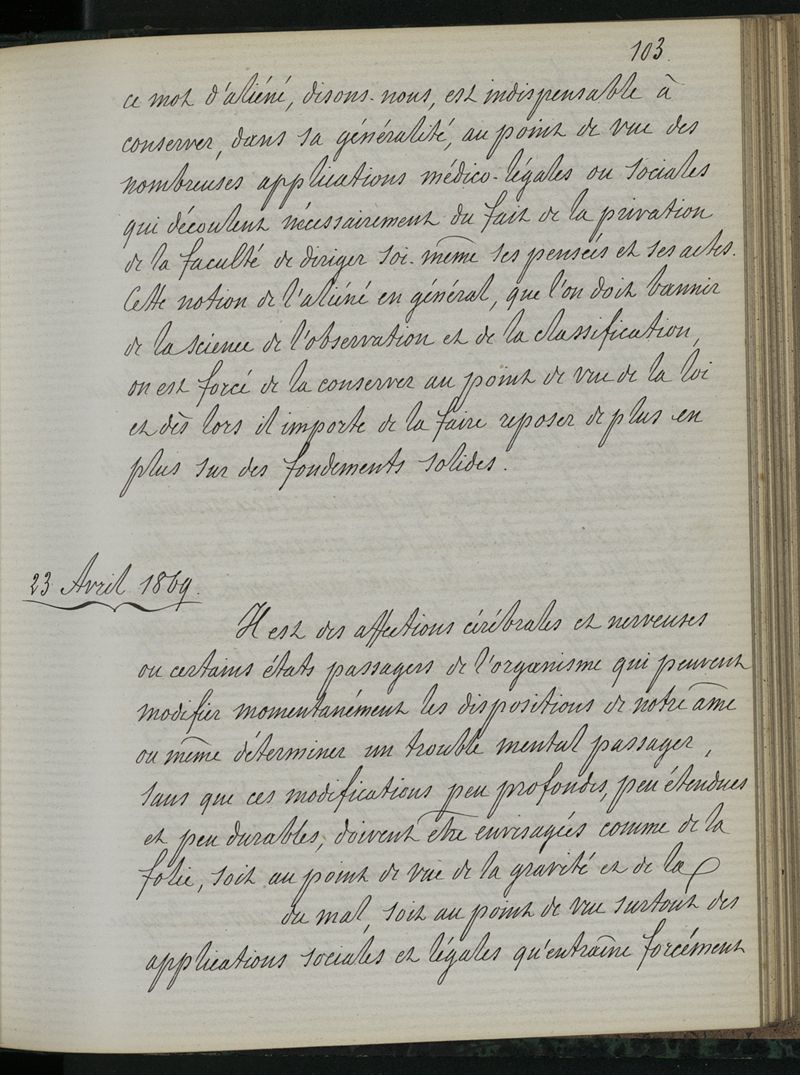 103.
ce mot d'aliéné, disons-nous, est indispensable à
conserver, dans sa généralité, au point de vue des
nombreuses applications médico-légales ou sociales
qui découlent nécessairement du fait de la privation
de la faculté de diriger soi-même ses pensées et ses actes.
Cette notion de l'aliéné en général, que l'on doit bannir
de la science de l'observation et de la classification,
on est forcé de la conserver au point de vue de la loi
et dès lors il importe de la faire reposer de plus en
plus sur des fondements solides.
23 Avril 1869.
Il est des affections cérébrales et nerveuses
ou certains états passagers de l'organisme qui peuvent
modifier momentanément les dispositions de notre âme
ou même déterminer un trouble mental passager,
sans que ces modifications peu profondes, peu étendues
et peu durables, doivent être envisagées comme de la
folie, soit au point de vue de la gravité et de la
du mal, soit au point de vue surtout des
applications sociales et légales qu'entraîne forcément